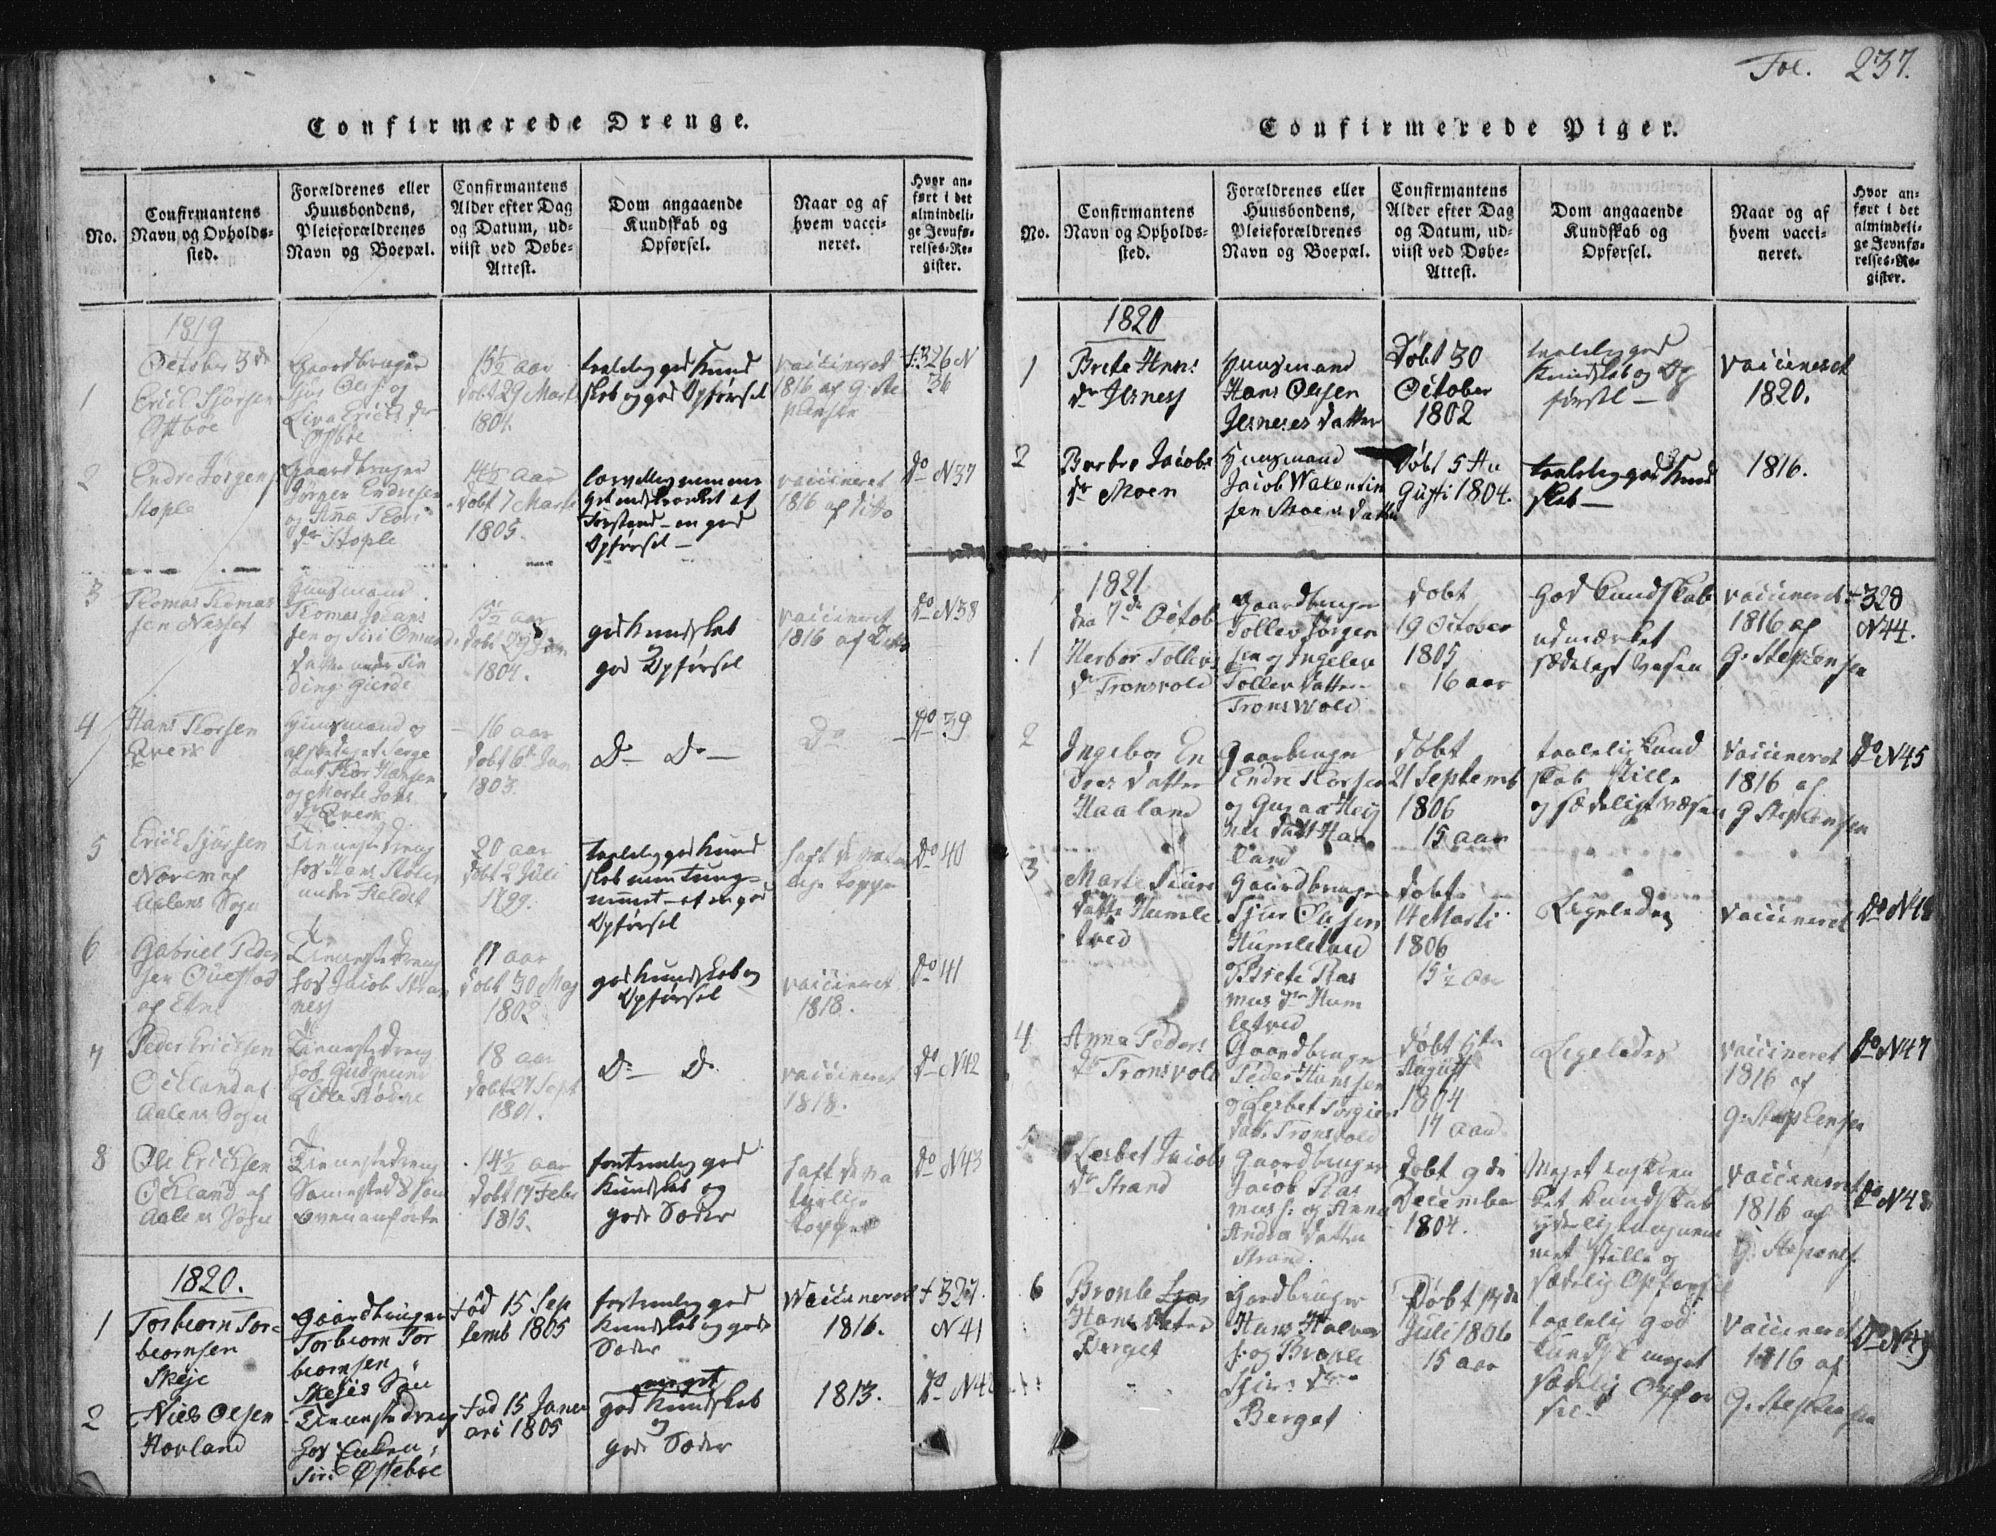 Fol. 237.
Confirmerede Drenge.
No.
Confirmantens
Navn og Opholds-
sted.
Forældrenes eller
Huusbondens,
Pleieforældrenes
Navn og Boepæl.
Confirmantens
Alder efter Dag
og Datum, ud-
viist ved Døbe-
Attest.
Dom angaaende
Kundskab og
Opførsel.
Naar og af
hvem vacci-
neret.
Hvor an-
ført i det
almindeli-
ge Jevnfø-
relses-Re-
gister.
1819
October 3de
1
Erick Sjørsen
Østboe
Gaardbruger
og
Liva Ericks dr
15½ aar
døbt 29 Marti
1804.
taalelig god Kund
skab og god Opførsel
vaccineret
1816 af G. Ste
phensen
326 N
36
2
Endre Jørgens
Stople
Gaardbruger
Jørgen Endresen
og Anna
dr Stople
14½ aar
døbt 7 Marti
1805.
Forstand - en god
Opførsel -
vaccineret
1816 af ditto
Do N37
3
Thomas Thomas
sen Nesset
Huusmand
Thomas Johans
sen og Siri
1804.
god Kundskab
og
god Opførsel
vaccineret
1816 af Ditto
Do N38
4
Hans Thorsen
Qverk
Huusmand og
Thor Hansen
og Marte Johs
dr Qverk
16 aar
døbt 6te Jan
1803.
Do Do
Do
Do 39
5
Erick Sjursen
af
Aalens Sogn
Tienestedreng
hos Hans
under Fieldet
20 aar
døbt 2 Juli
1799.
taalelig god Kund
skab
Opførsel
haft de natur
lige kopper
Do 40
6
Gabriel Peder
sen
af Etne
Tienestedreng
hos Jacob Stran
nes
17 aar
døbt 30 Maj
1802
god Kundskab og
Opførsel
vaccineret
1818.
Do 41
7
Peder Ericksen
Øckland af
Aalens Sogn
Tienestedreng
hos Gudmund
Litle
18 aar
døbt 27 Sept
1801.
Do Do
vaccineret
1818.
Do N42
8
Ole Ericksen
Øckland af
Aalens Sogn
Tienestedreng
Samesteds som
ovenanførte
14½ aar
døbt 17 Febr
1815.
fortrinlig god
Kundskab og
gode Sæder
haft de na
turlige
kopper
Do N43
1820.
1
Torbiørn Tor-
biørnsen
Skeje
Gaardbruger
Torbiørn Tor
biørnsen
Skejes Søn
Fød 15 Sep
temb 1805
fortrinlig god
Kundskab og gode
Sæder
Vaccineret
1816.
327
N41
2
Niels Olsen
Hovland
Tienestedreng
hos Enken
Siri Østeboe
Fød 15 Janu
ari 1805
meget
god Kundskab
og
gode Sæder
1813.
Do N42
Confirmerede Piger.
No.
Confirmantens
Navn og Opholds-
sted.
Forældrenes eller
Huusbondens,
Pleieforældrenes
Navn og Boepæl.
Confirmantens
Alder efter Dag
og Datum, ud-
viist ved Døbe-
Attest.
Dom angaaende
Kundskab og
Opførsel.
Naar og af
hvem vacci-
neret.
Hvor an-
ført i det
almindeli-
ge Jevnfø-
relses-Re-
gister.
1820
1
Brete Hans
dr Jesness
Huusmand
Hans Olsen
Jesneses datter
Døbt 30
October
1802
taalelig god
Kundskab og Op
førsel -
vaccineret
1820.
2
Barbro Jacobs
dr Moen
Huusmand
Jacob Walentin
sen Moens datter
Døbt 5 Au
gusti 1804.
taalelig god Kund
skab -
1816.
1821
den 7de Octob
1
Herbor Tollevs
dr Tronsvold
Gaardbruger
Tollev Jørgen
sen og Ingebor
Tollev datter
Tronswold
døbt
19 October
1805
16 aar
God Kundskab
udmærket
sædeligt Væsen
vaccineret
1816 af
G. Stephensen
328
N44.
2
Ingebor En
dres datter
Haaland
Gaarbruger
Endre Thorsen
og
datt Haa
land
døbt
21 Septemb
1806
15 aar
taalelig Kund
skab stille
og sædeligt væsen
vaccineret
1816 af
G. Stephensen
Do N45
3
Marte Siurs
datter Humle
tved
Gaardbruger
Sjur Olsen
Humletved
Brete Ras
mus dr Hum
letved
døbt
14 Marti
1806
15½ aar
Ligeledes
vaccineret
Do N46
4
Anna Peders
dr Tronsvold
Gaardbruger
Peder Hansen
og Lisbet Torgiers
datt. Tronsvold
Døbt 6te
August
1804
17 aar
Ligeledes
vaccineret
1816 af
G. Stephensen
Do N47
5
Lisbet Jacobs
dr Strand
Gaardbruger
Jacob Ras
muss: og Anna
Andrea datter
Strand
Døbt 9de
December
1804.
Meget indskræn
ket Kundskab
met stille og
sædelig Opførsel
vaccineret
1816 af
G. Stephensen
Do N48
6
Bronle
Hans dater
Berget
Gardbruger
Hans Halvor
s: og
Sjurs dr
Berget
Døbt 17de
Juli 1806
15 aar
taalelig god
Kundsk meget
sædelig Opfør
sel
vaccineret
1816 af
G. Stephensen
Do N49